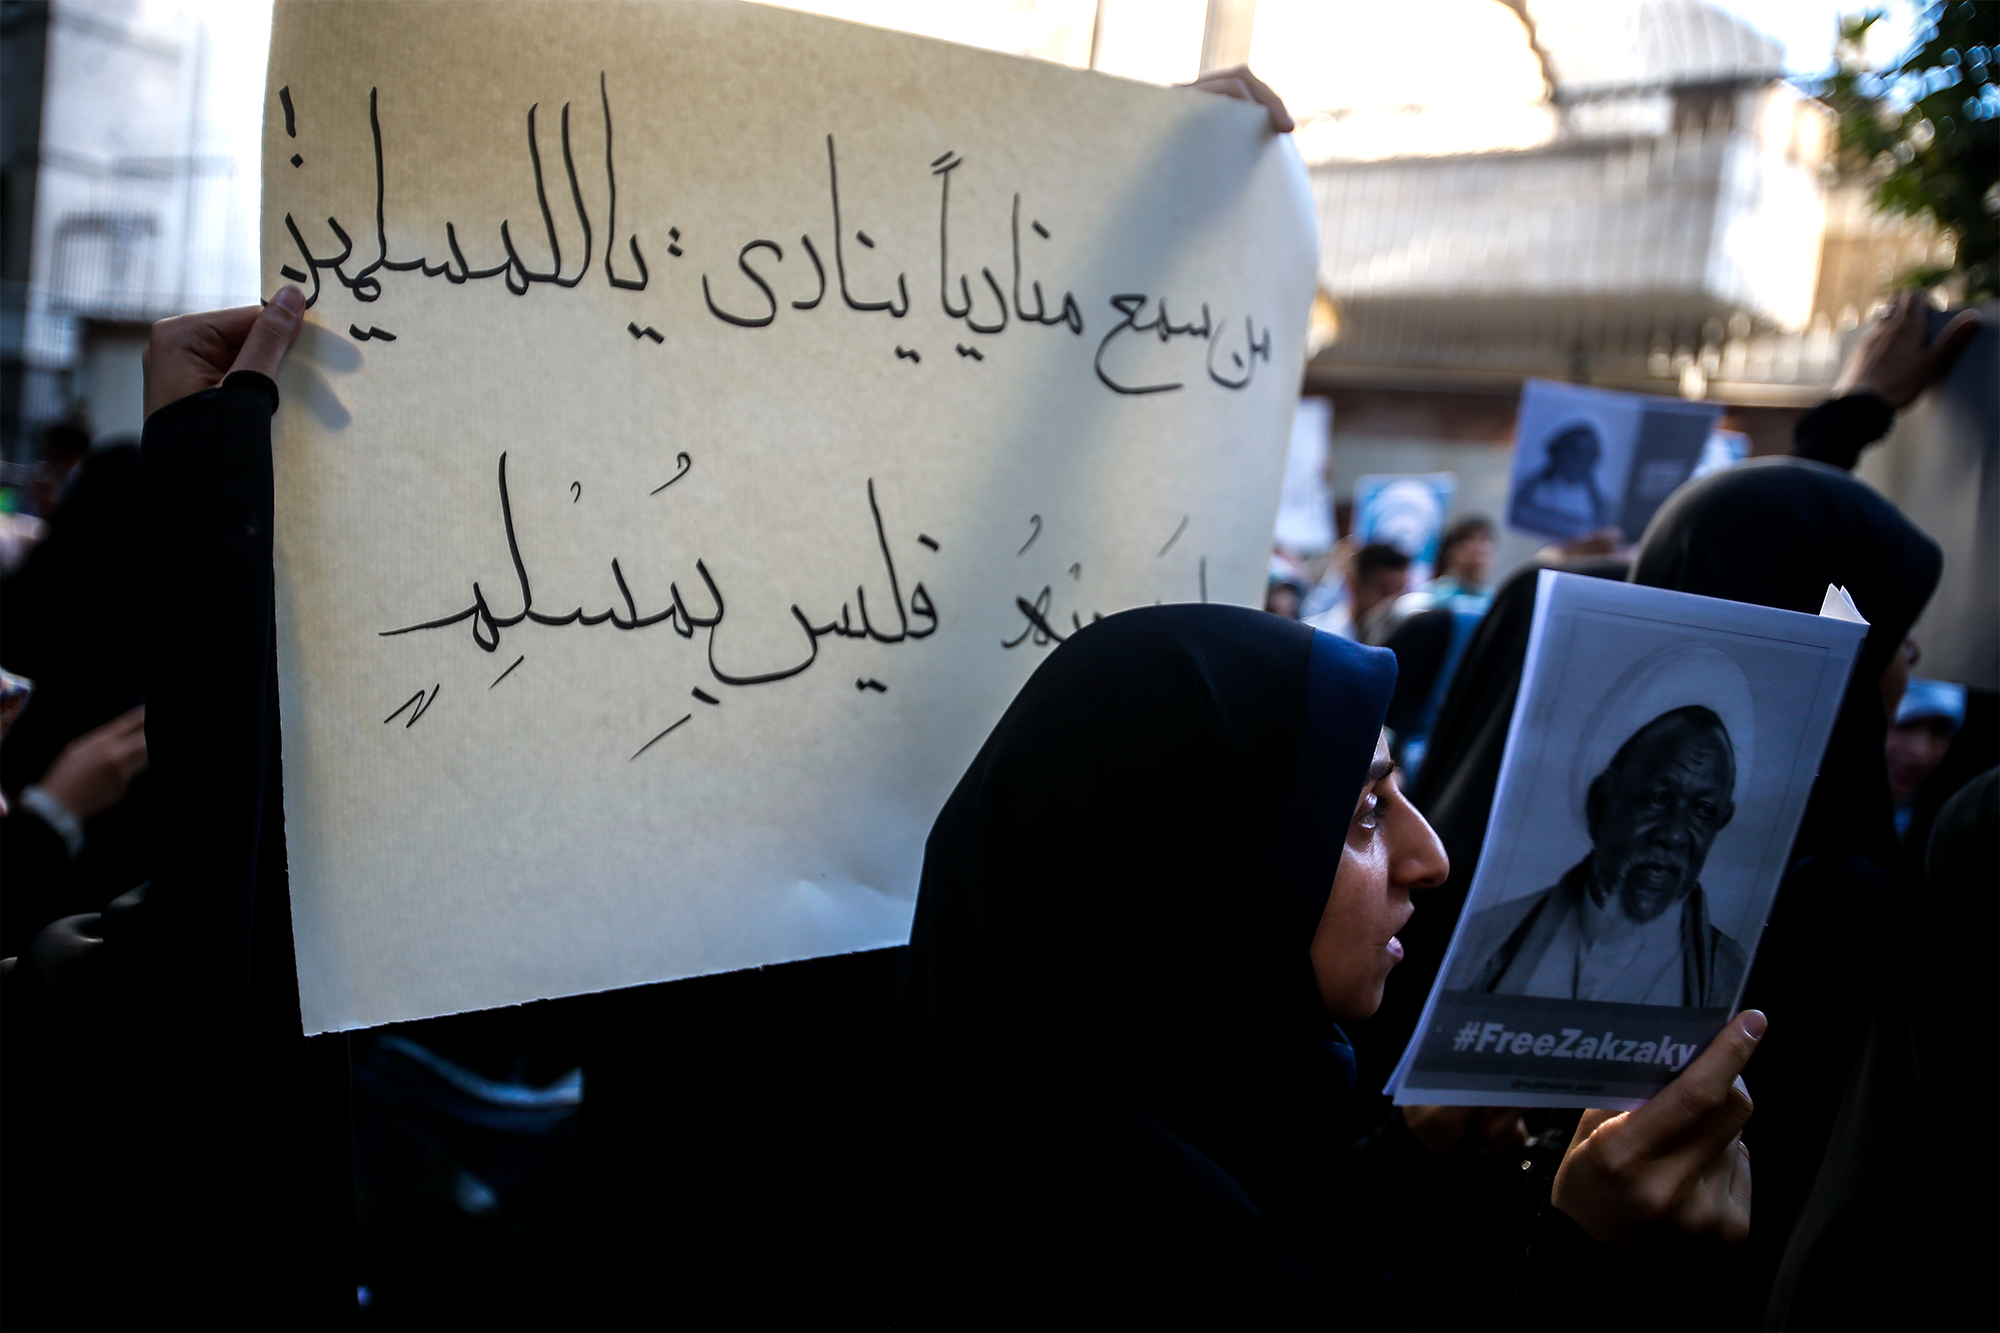 من سمع منادياً ينادى : ياللمسلمین!
فليس بِمُسْلِمٍ
#FreeZakzaky